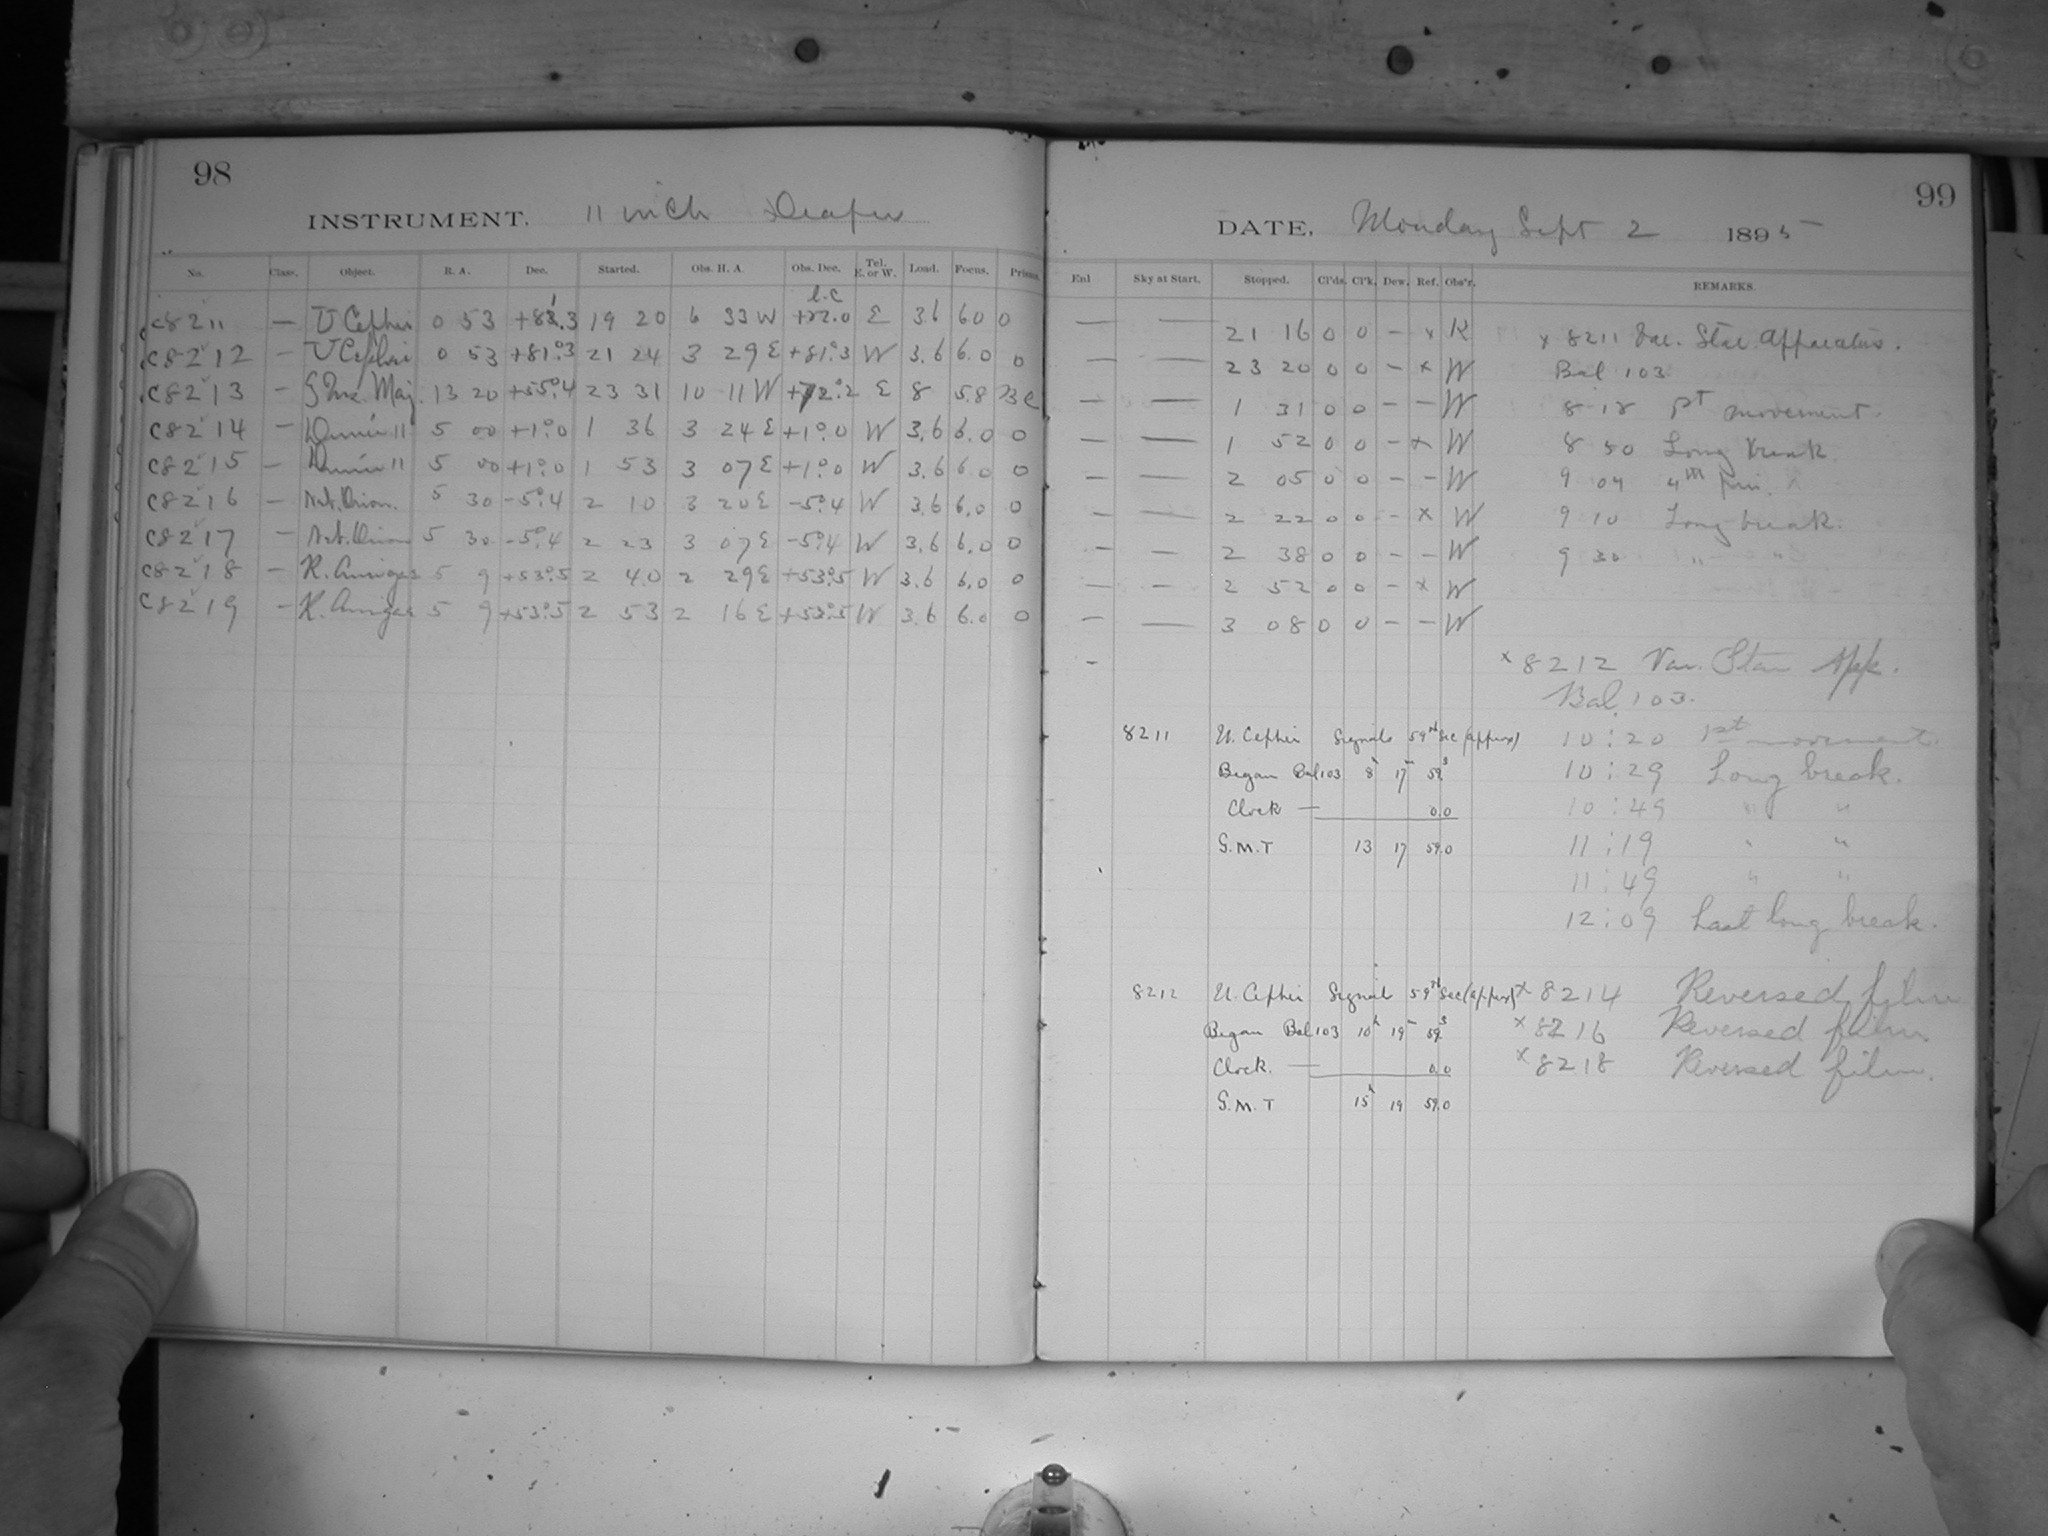 98
INSTRUMENT. 11 inch Draper
No. Class. Object. R. A. Dec. Started. Obs. H. A. Obs. Dec. Tel. E. or W. Load. Focus. Prisms.
l.c
C8211 — U Cephei 0 53 +81.3 19 20 6 33 W E 3.6 6.0 0
C8212 — U Cephei 0 53 +81°.3 21 24 3 29 E +81°.3 W 3.6 6.0 0
C8213 — 13 20 +55°.4 23 31 10 11 W +72°.2 E 8 5.8
C8214 — 5 00 +1°.0 1 36 3 24 E +1°.0 W 3.6 6.0 0
C8215 — 5 00 +1°.0 1 53 3 07 E +1°.0 W 3.6 6.0 0
C8216 — Neb. Orion. 5 30 -5°.4 2 10 3 20 E -5°.4 W 3.6 6.0 0
C8217 — Neb. Orion 5 30 -5°.4 2 23 3 07 E -5°.4 W 3.6 6.0 0
C8218 — R. Aurigae 5 9 +53°.5 2 40 2 29 E +53°.5 W 3.6 6.0 0
C8219 — R. Aurigae 5 9 +53°.5 2 53 2 16 E +53°.5 W 3.6 6.0 0
99
DATE, Monday Sept 2 1895
Enl Sky at Start. Stopped. Cl'ds. Cl'k. Dew. Ref. Obs'r. REMARKS.
— — 21 16 0 0 — x K x 8211 Var. Star Apparatus.
— — 23 20 0 0 — x W Bal 103
— — 1 31 0 0 — — W 8 18 1st movement.
— — 1 52 0 0 — x W 8 50 Long break.
— — 2 05 0 0 — — W 9 04
— — 2 22 0 0 — x W 9 10 Long break.
— — 2 38 0 0 — — W 9 30 " "
— — 2 52 0 0 — x W
— — 3 08 0 0 — — W
— x 8212 Var. Star App.
Bal. 103.
8211 U. Cephei Signals 59th sec (approx) 10:20 1st movement.
Began Bal 103 8h 17m 59s 10:29 Long break.
Clock — 0.0 10:49 " "
G.M.T 13 17 59.0 11:19 " "
11:49 " "
12:09 Last long break.
8212 U. Cephei Signals 59th Sec (approx) x 8214 Reversed film
Began Bal 103 10h 19m 59s x 8216 Reversed film.
Clock. — 0.0 x 8218 Reversed film.
G.M.T 15h 19 59.0